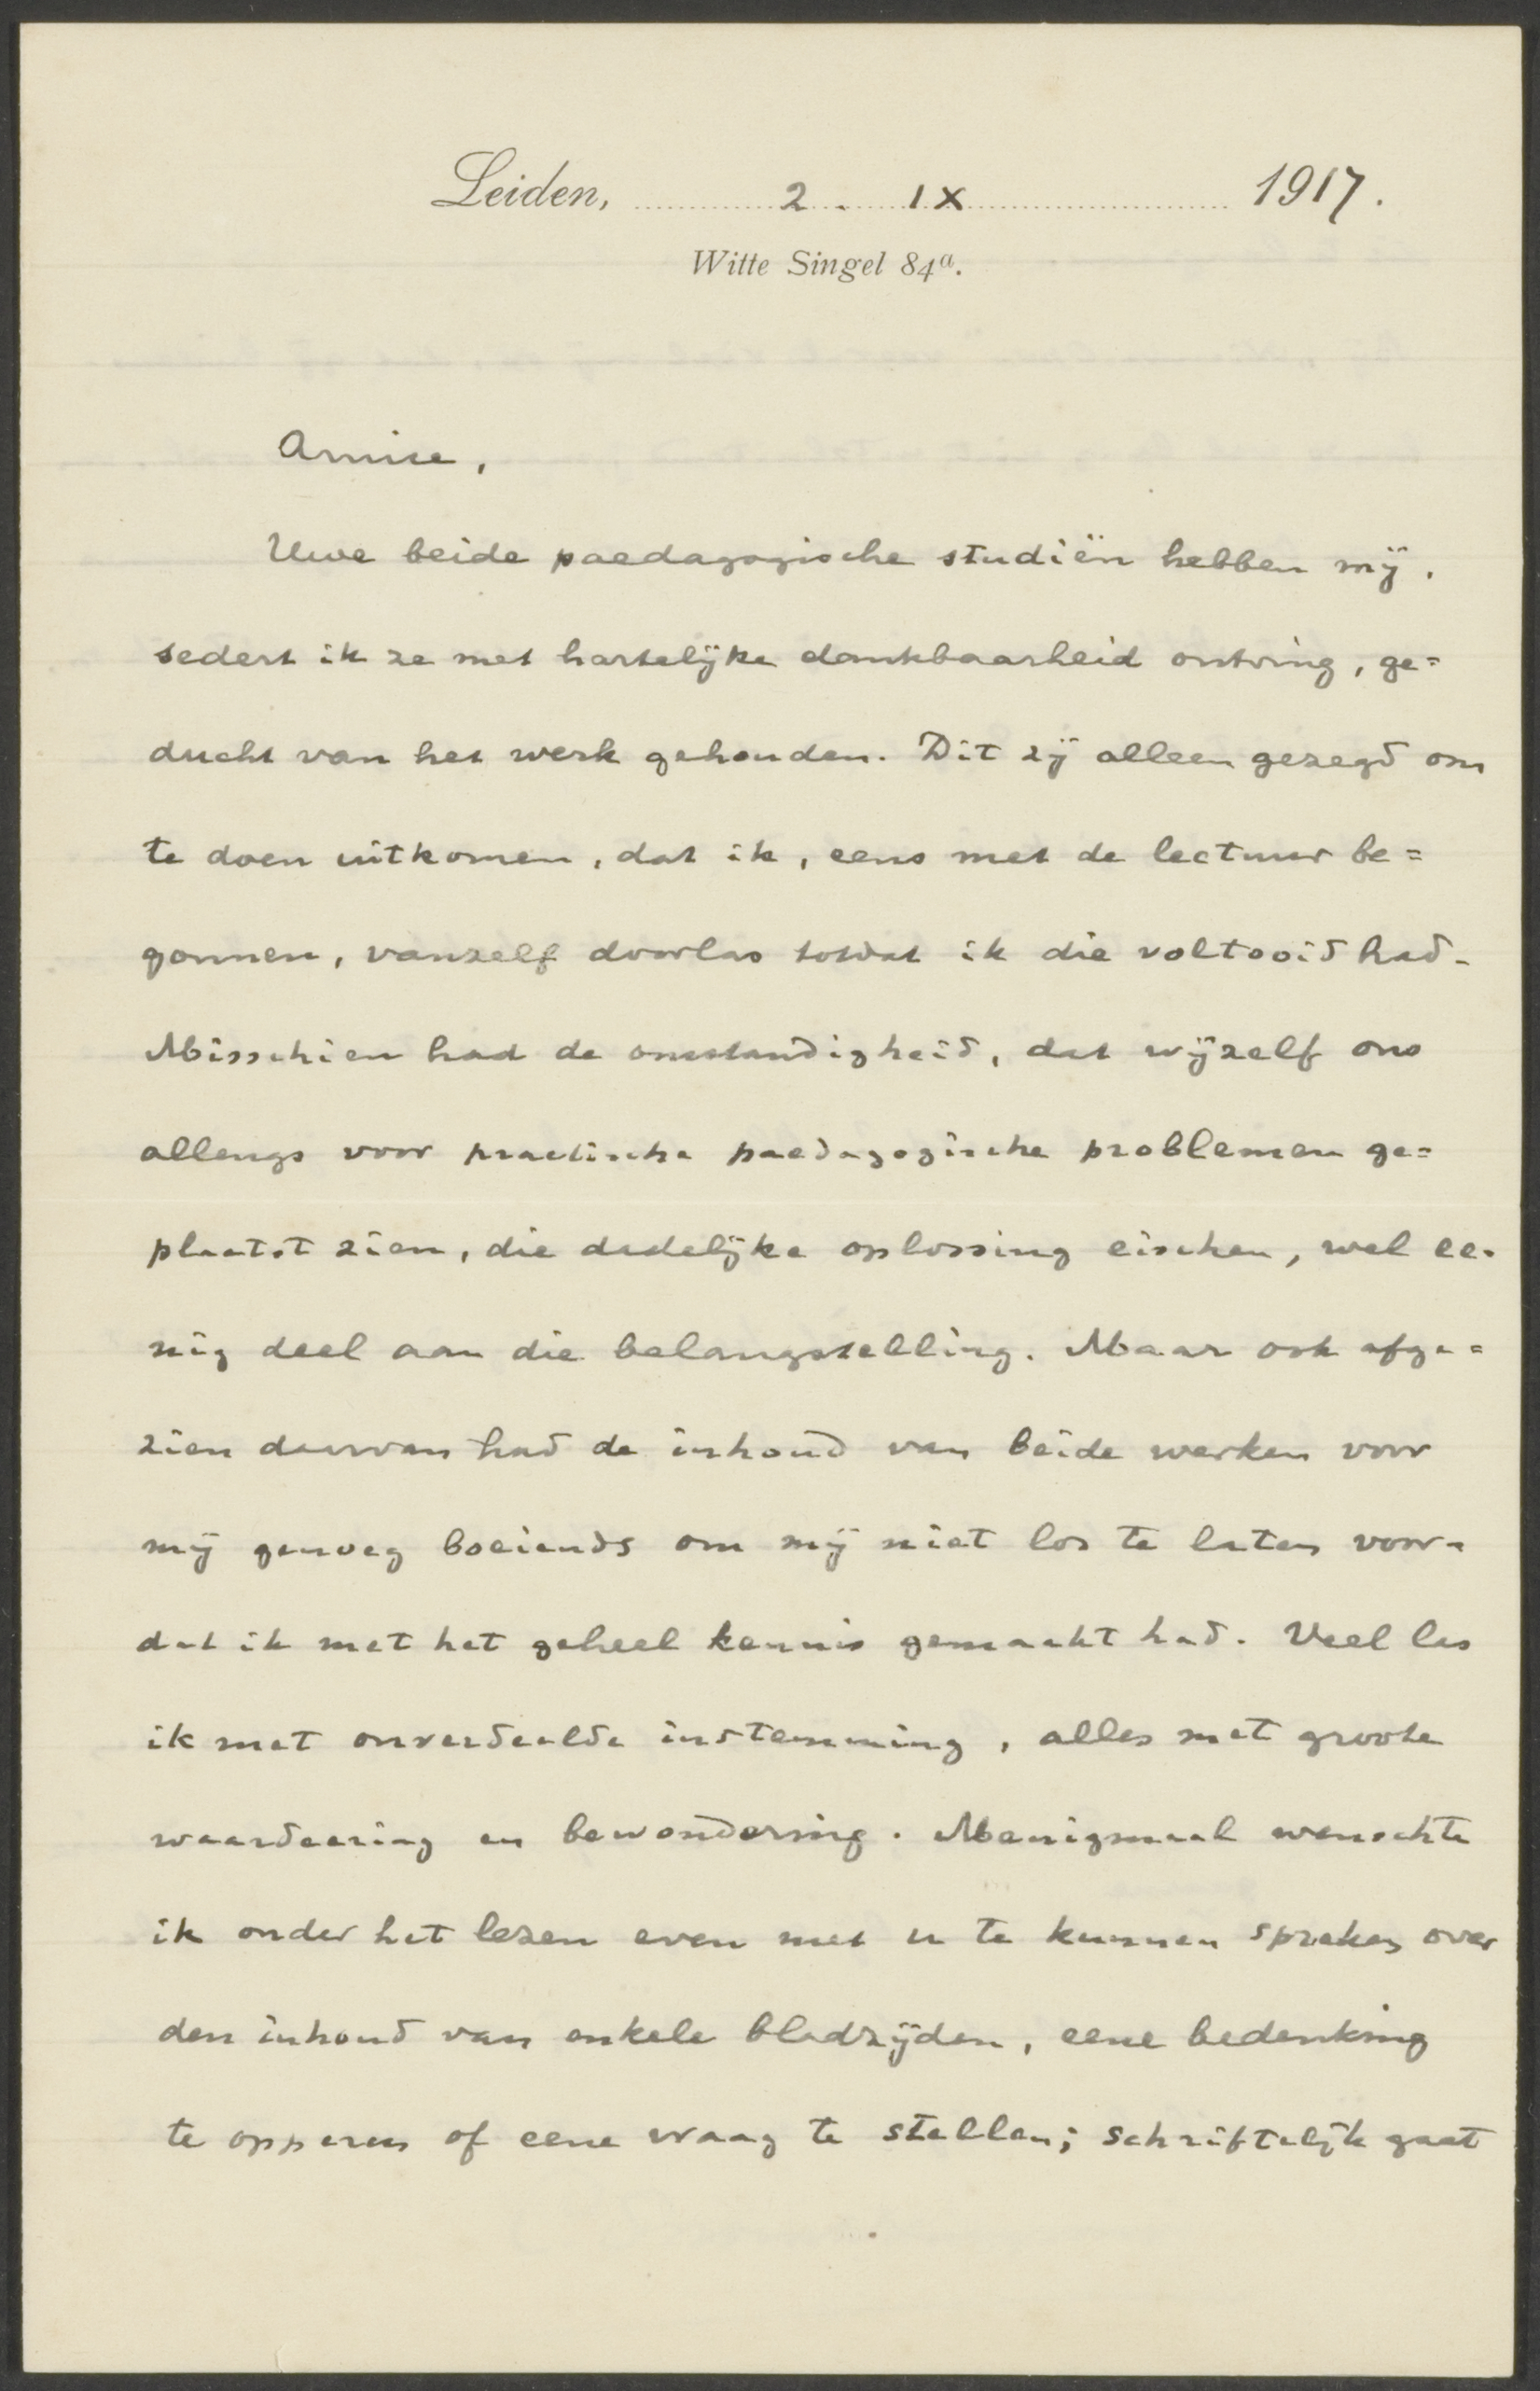 Leiden, 2. IX 1917.
Witte Singel 84a.
Amice,
Uwe beide paedagogische studiën hebben mij,
sedert ik ze met hartelijke dankbaarheid ontving, ge=
ducht van het werk gehouden. Dit zij alleen gezegd om
te doen uitkomen, dat ik, eens met de lectuur be=
gonnen, vanzelf doorlas totdat ik die voltooid had.
Misschien had de omstandigheid, dat wijzelf ons
allengs voor practische paedagogische problemen ge=
plaatst zien, die dadelijke oplossing eischen, wel ee-
nig deel aan die belangstelling. Maar ook afge=
zien daarvan had de inhoud van beide werken voor
mij genoeg boeiends om mij niet los te laten voor-
dat ik met het geheel kennis gemaakt had. Veel las
ik met onverdeelde instemming, alles met groote
waardeering en bewondering. Menigmaal wenschte
ik onder het lezen even met u te kunnen spreken over
den inhoud van enkele bladzijden, eene bedenking
te opperen of eene vraag te stellen; schriftelijk gaat